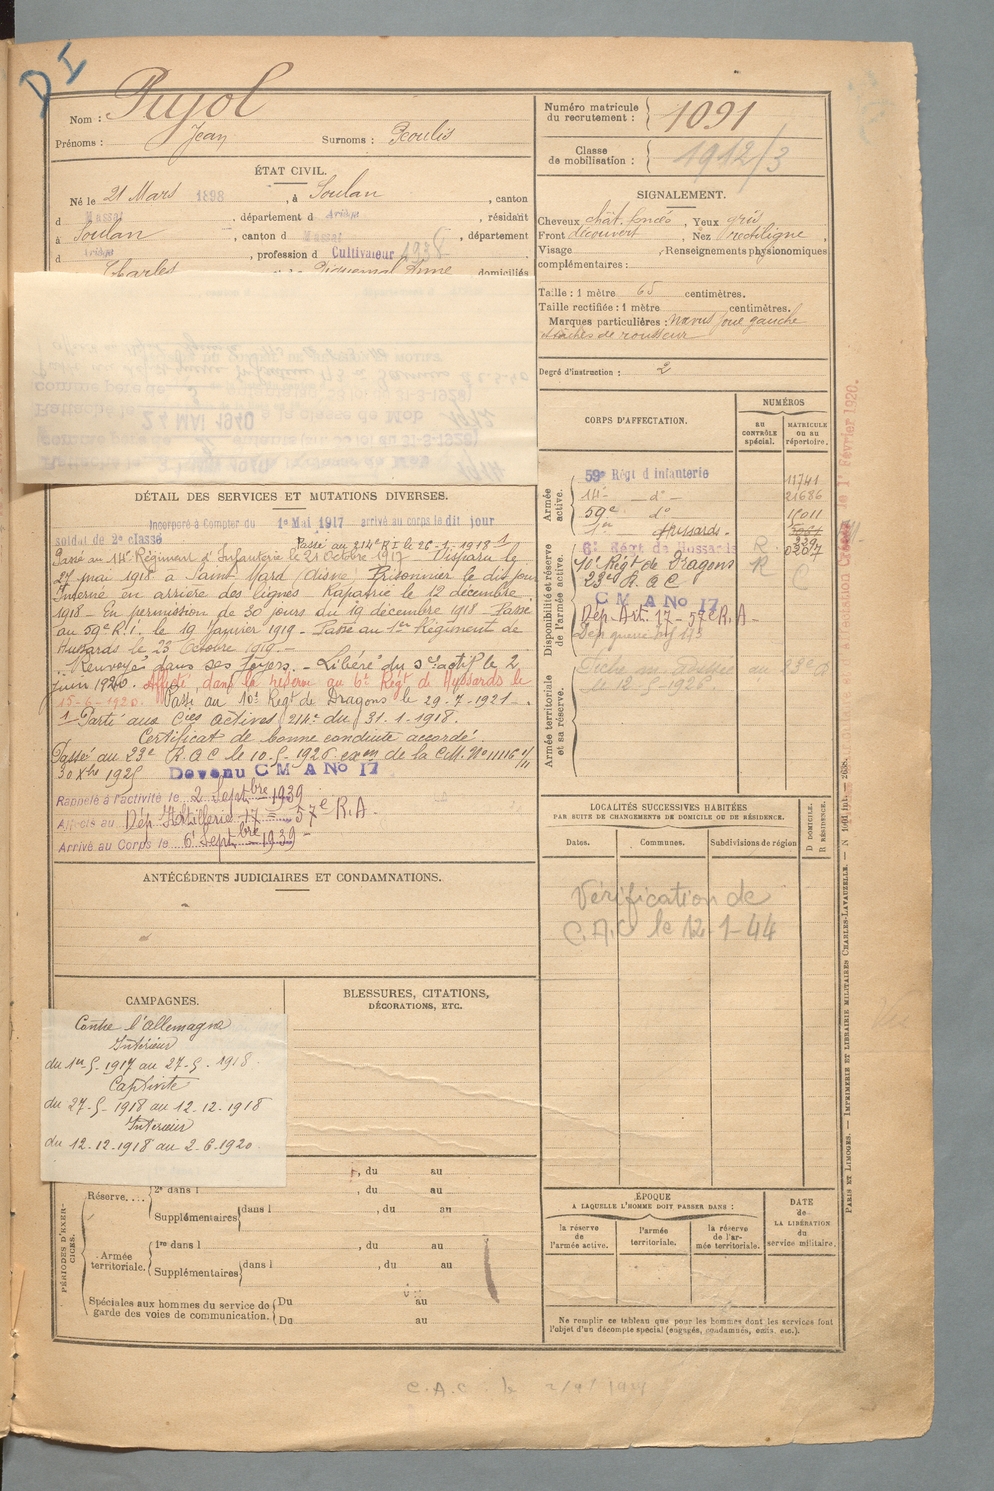 D I
Nom : Pujol
Prénoms : Jean Surnoms : Peoulis
Numéro matricule du recrutement : 1091
Classe de mobilisation : 1912/3
ÉTAT CIVIL.
Né le 21 Mars 1898, à Soulan, canton
d Massat, département d Ariège, résidant
à Soulan, canton d Massat, département
d Ariège, profession d Cultivateur 1938
Charles Piquemal Anne domiciliés
SIGNALEMENT.
Cheveux chât. foncés, Yeux gris
Front découvert, Nez rectiligne,
Visage , Renseignements physionomiques
complémentaires :
Taille : 1 mètre 65 centimètres.
Taille rectifiée : 1 mètre centimètres.
Marques particulières : nævus joue gauche
taches de rousseur
Degré d'instruction : 2
DÉTAIL DES SERVICES ET MUTATIONS DIVERSES.
Incorporé à Compter du 1er Mai 1917 arrivé au corps le dit jour
soldat de 2e classe
Passé au 214e RI le 26-1-1918 1
Passé au 14e Régiment d'Infanterie le 21 octobre 1917 Disparu le
27 mai 1918 à Saint Mard (Aisne) Prisonnier le dit jour
Interné en arrière des lignes Rapatrié le 12 décembre
1918 - En permission de 30 jours du 19 décembre 1918 - Passé
au 59e R.I. le 19 Janvier 1919 - Passé au 1er Régiment de
Hussards le 23 Octobre 1919. -
Renvoyé dans ses foyers. - Libéré du sce actif le 2
juin 1920. Affecté dans la réserve au 6e Régt de Hussards le
15-6-1920. Passé au 10e Régt de Dragons le 29-7-1921 -
1 Parti aux Cies actives (214e du 31.1.1918.
Certificat de bonne conduite accordé.
Passé au 23e R.A.C le 10.5-1926 exon de la C.M. No 11116 1/11
30 Xbre 1925 Devenu C M A No 17
Rappelé à l'activité le 2 Septbre 1939
Affecté au Dép. Artillerie 17 = 57e R.A.
Arrivé au Corps le 6 Septbre 1939 -
CORPS D'AFFECTATION.
NUMÉROS
au CONTRÔLE spécial.
MATRICULE ou au répertoire.
Armée active.
59e Régt d'infanterie 11741
14e - do - 21686
59e do 16011
1er Hussards
Disponibilité et réserve de l'armée active.
6e Régt de Hussards R
10e Régt de Dragons R
23e R.A.C C
C M A No 17
Dép. Art. 17 - 57e R.A -
Armée territoriale et sa réserve.
LOCALITÉS SUCCESSIVES HABITÉES
PAR SUITE DE CHANGEMENTS DE DOMICILE OU DE RÉSIDENCE.
Dates. Communes. Subdivisions de région
D DOMICILE.
R RÉSIDENCE.
Vérification de
C.A.C le 12-1-44
ANTÉCÉDENTS JUDICIAIRES ET CONDAMNATIONS.
CAMPAGNES.
Contre l'Allemagne
Intérieur
du 1er-5-1917 au 27-5-1918
Captivité
du 27-5-1918 au 12.12.1918
Intérieur
du 12.12.1918 au 2.6.1920
BLESSURES, CITATIONS,
DÉCORATIONS, ETC.
PÉRIODES D'EXERCICES.
, du au
Réserve.... 2e dans l , du au
Supplémentaires dans l , du au
Armée territoriale. 1re dans l , du au
Supplémentaires dans l , du au
Spéciales aux hommes du service de garde des voies de communication. Du au
Du au
ÉPOQUE
A LAQUELLE L'HOMME DOIT PASSER DANS :
la réserve de l'armée active.
l'armée territoriale.
la réserve de l'armée territoriale.
DATE de LA LIBÉRATION du service militaire.
Ne remplir ce tableau que pour les hommes dont les services font
l'objet d'un décompte spécial (engagés, condamnés, omis, etc.).
PARIS ET LIMOGES. — IMPRIMERIE ET LIBRAIRIE MILITAIRES CHARLES-LAVAUZELLE.